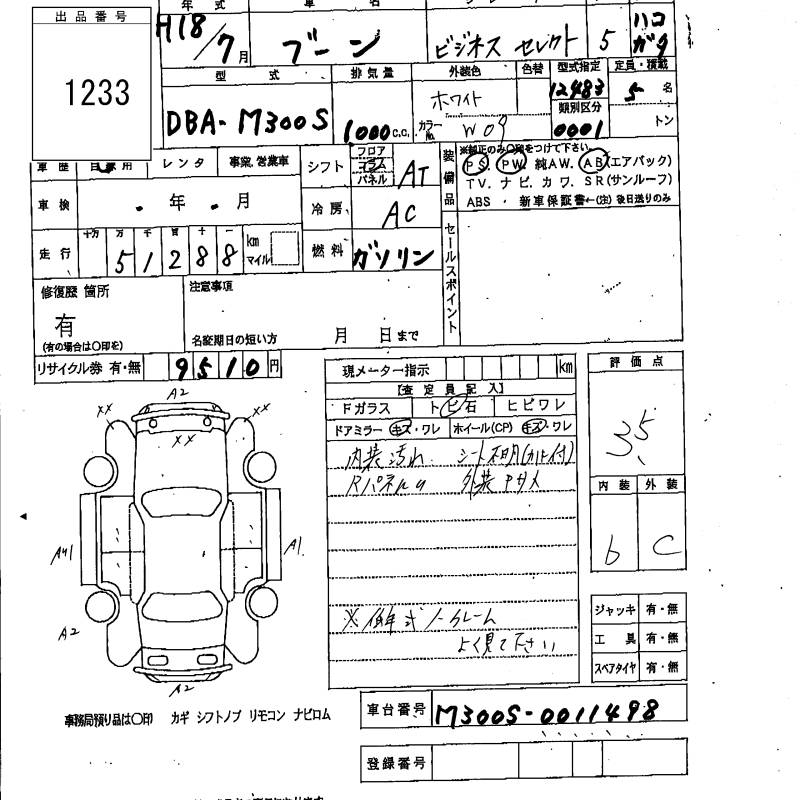 年式
車名
出品番号
1233
H18/7月
ブーン
ビジネス セレクト
5
ハコ
ガタ
型式
排気量
外装色
色替
型式指定
定員・積載
DBA-M300S
1000c.c.
ホワイト
カラーNo.
W09
12483
類別区分
0001
5名
トン
車歴 自家用 レンタ 事業、営業車
シフト
フロア
コラム
パネル
AT
装備品
※純正のみ〇印をつけて下さい。
PS. PW. 純AW. AB(エアバック)
TV. ナビ. カワ. SR(サンルーフ)
ABS ・ 新車保証書←(注)後日送りのみ
車検 ・年 ・月
冷房 AC
走行
十万 万 千 百 十 一
51288
km
マイル
燃料 ガソリン
セールスポイント
修復歴 箇所
有
(有の場合は〇印を)
注意事項
名変期日の短い方 月 日まで
リサイクル券 有・無 9510円
現メーター指示 km
【査定員記入】
Fガラス トビ石 ヒビワレ
ドアミラー キズ・ワレ ホイール(CP) キズ・ワレ
内装汚れ
※
よく見て下さい
評価点
3.5
内装 外装
b C
A2
XX XX
XX
A41 A1
A2
A2
ジャッキ 有・無
工具 有・無
スペアタイヤ 有・無
事務局預り品は〇印 カギ シフトノブ リモコン ナビロム
車台番号 M300S-0011498
登録番号